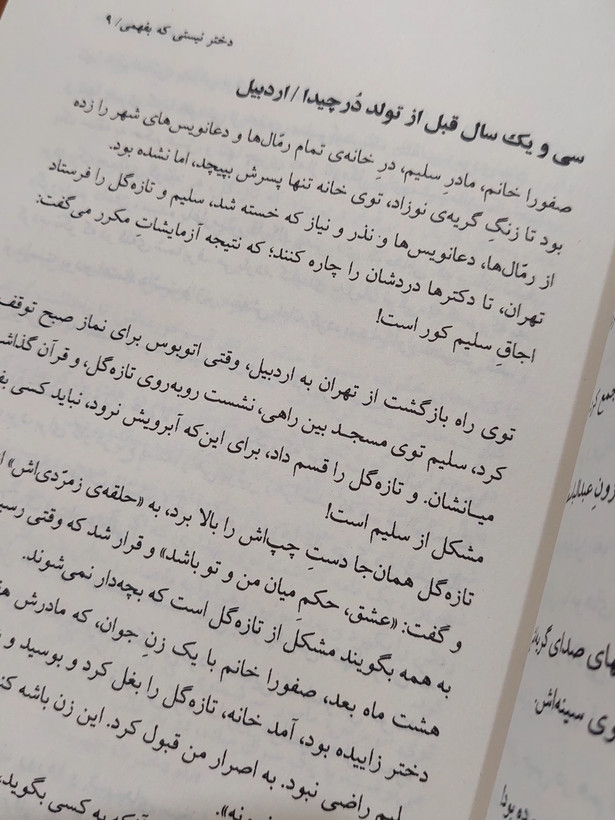 دختر نیستی که بفهمی/ ۹
سی و یک سال قبل از تولد دُرچیدا / اردبیل
صفورا خانم، مادرِ سلیم، درِ خانه‌ی تمام رمّال‌ها و دعانویس‌های شهر را زده
بود تا زنگِ گریه‌ی نوزاد، توی خانه تنها پسرش بپیچد، اما نشده بود.
از رمّال‌ها، دعانویس‌ها و نذر و نیاز که خسته شد، سلیم و تازه‌گل را فرستاد
تهران، تا دکترها دردشان را چاره کنند؛ که نتیجه آزمایشاتِ مکرر می‌گفت:
اجاقِ سلیم کور است!
توی راه بازگشت از تهران به اردبیل، وقتی اتوبوس برای نماز صبح توقف
کرد، سلیم توی مسجد بین راهی، نشست روبه‌روی تازه‌گل، و قرآن
میانشان. و تازه‌گل را قسم داد، برای این‌که آبرویش نرود، نباید کسی
مشکل از سلیم است!
تازه‌گل همان‌جا دستِ چپ‌اش را بالا برد، به «حلقه‌ی زمرّدی‌اش»
و گفت: «عشق، حکمِ میان من و تو باشد» و قرار شد که وقتی
به همه بگویند مشکل از تازه‌گل است که بچه‌دار نمی‌شوند.
هشت ماه بعد، صفورا خانم با یک زنِ جوان، که مادرش
دختر زاییده بود، آمد خانه، تازه‌گل را بغل کرد و بوسید و
نبود. به اصرار من قبول کرد. این زن باشه
به کسی بگوید،
جمع
رونِ
های صدای
وی سینه‌اش.
ده بود!